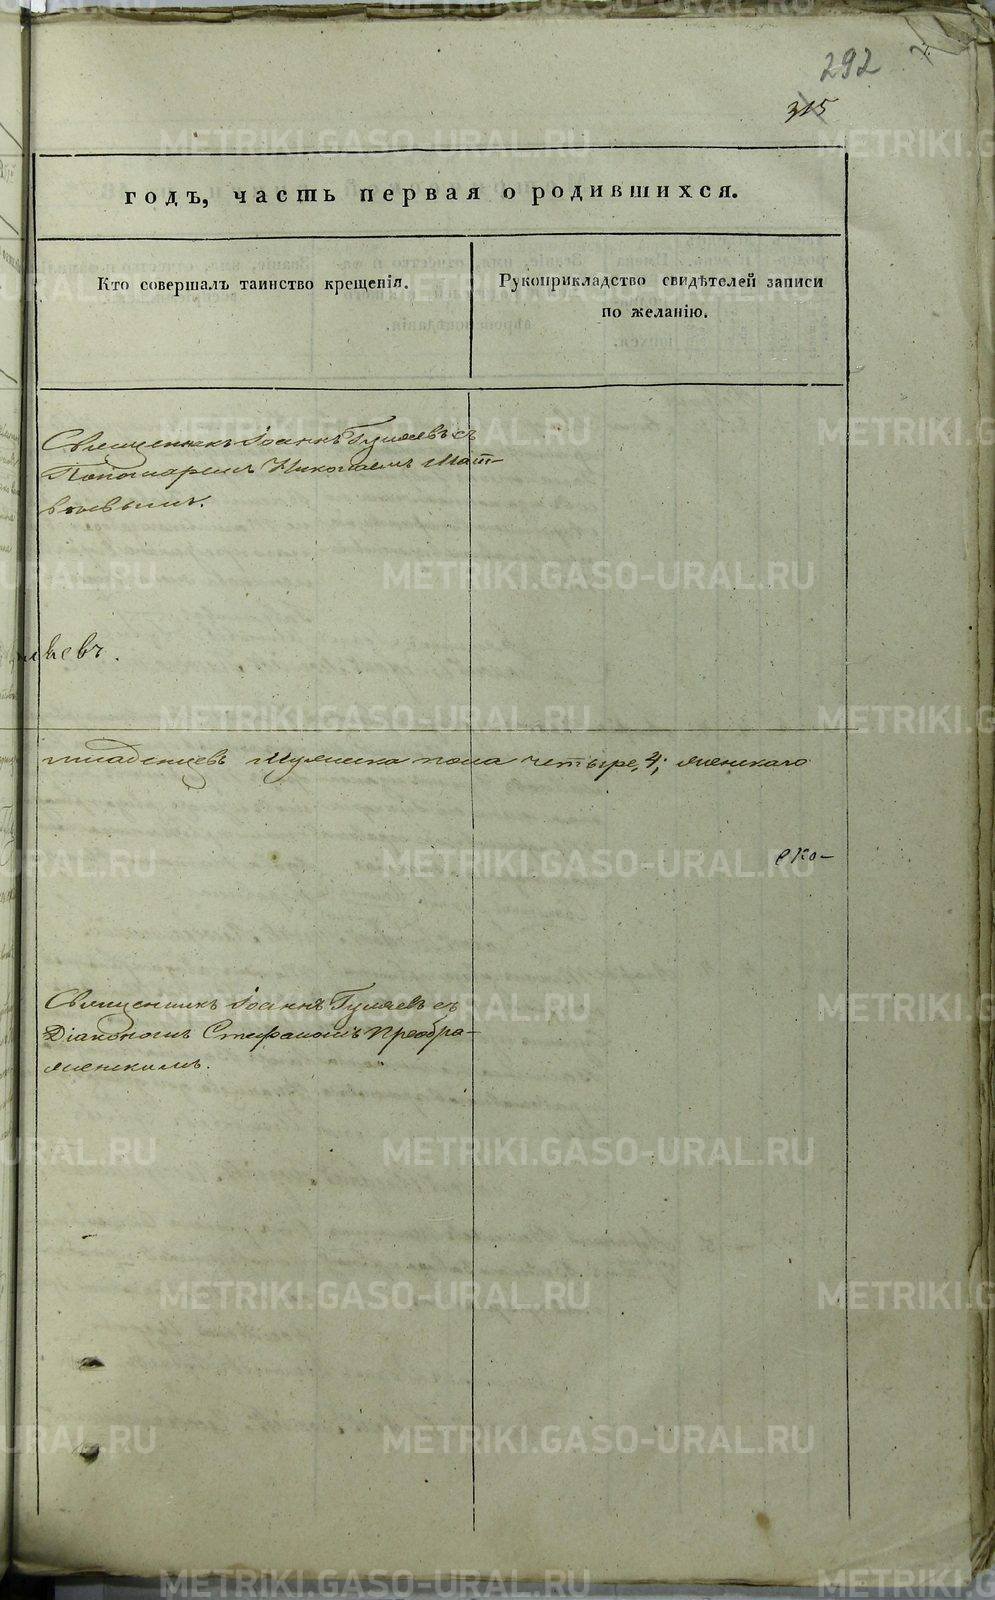 292
315
годъ, часть первая о родившихся.
Кто совершалъ таинство крещенія.
Рукоприкладство свидѣтелей записи
по желанію.
Священникъ Іоаннъ Гуляевъ съ
Пономаремъ Николаемъ Мат-
вѣевымъ.
младенцевъ мужеска пола четыре, 4; женскаго
ско-
Священникъ Іоаннъ Гуляевъ съ
Діакономъ Стефаномъ Преобра-
женскимъ.
METRIKI.GASO-URAL.RU